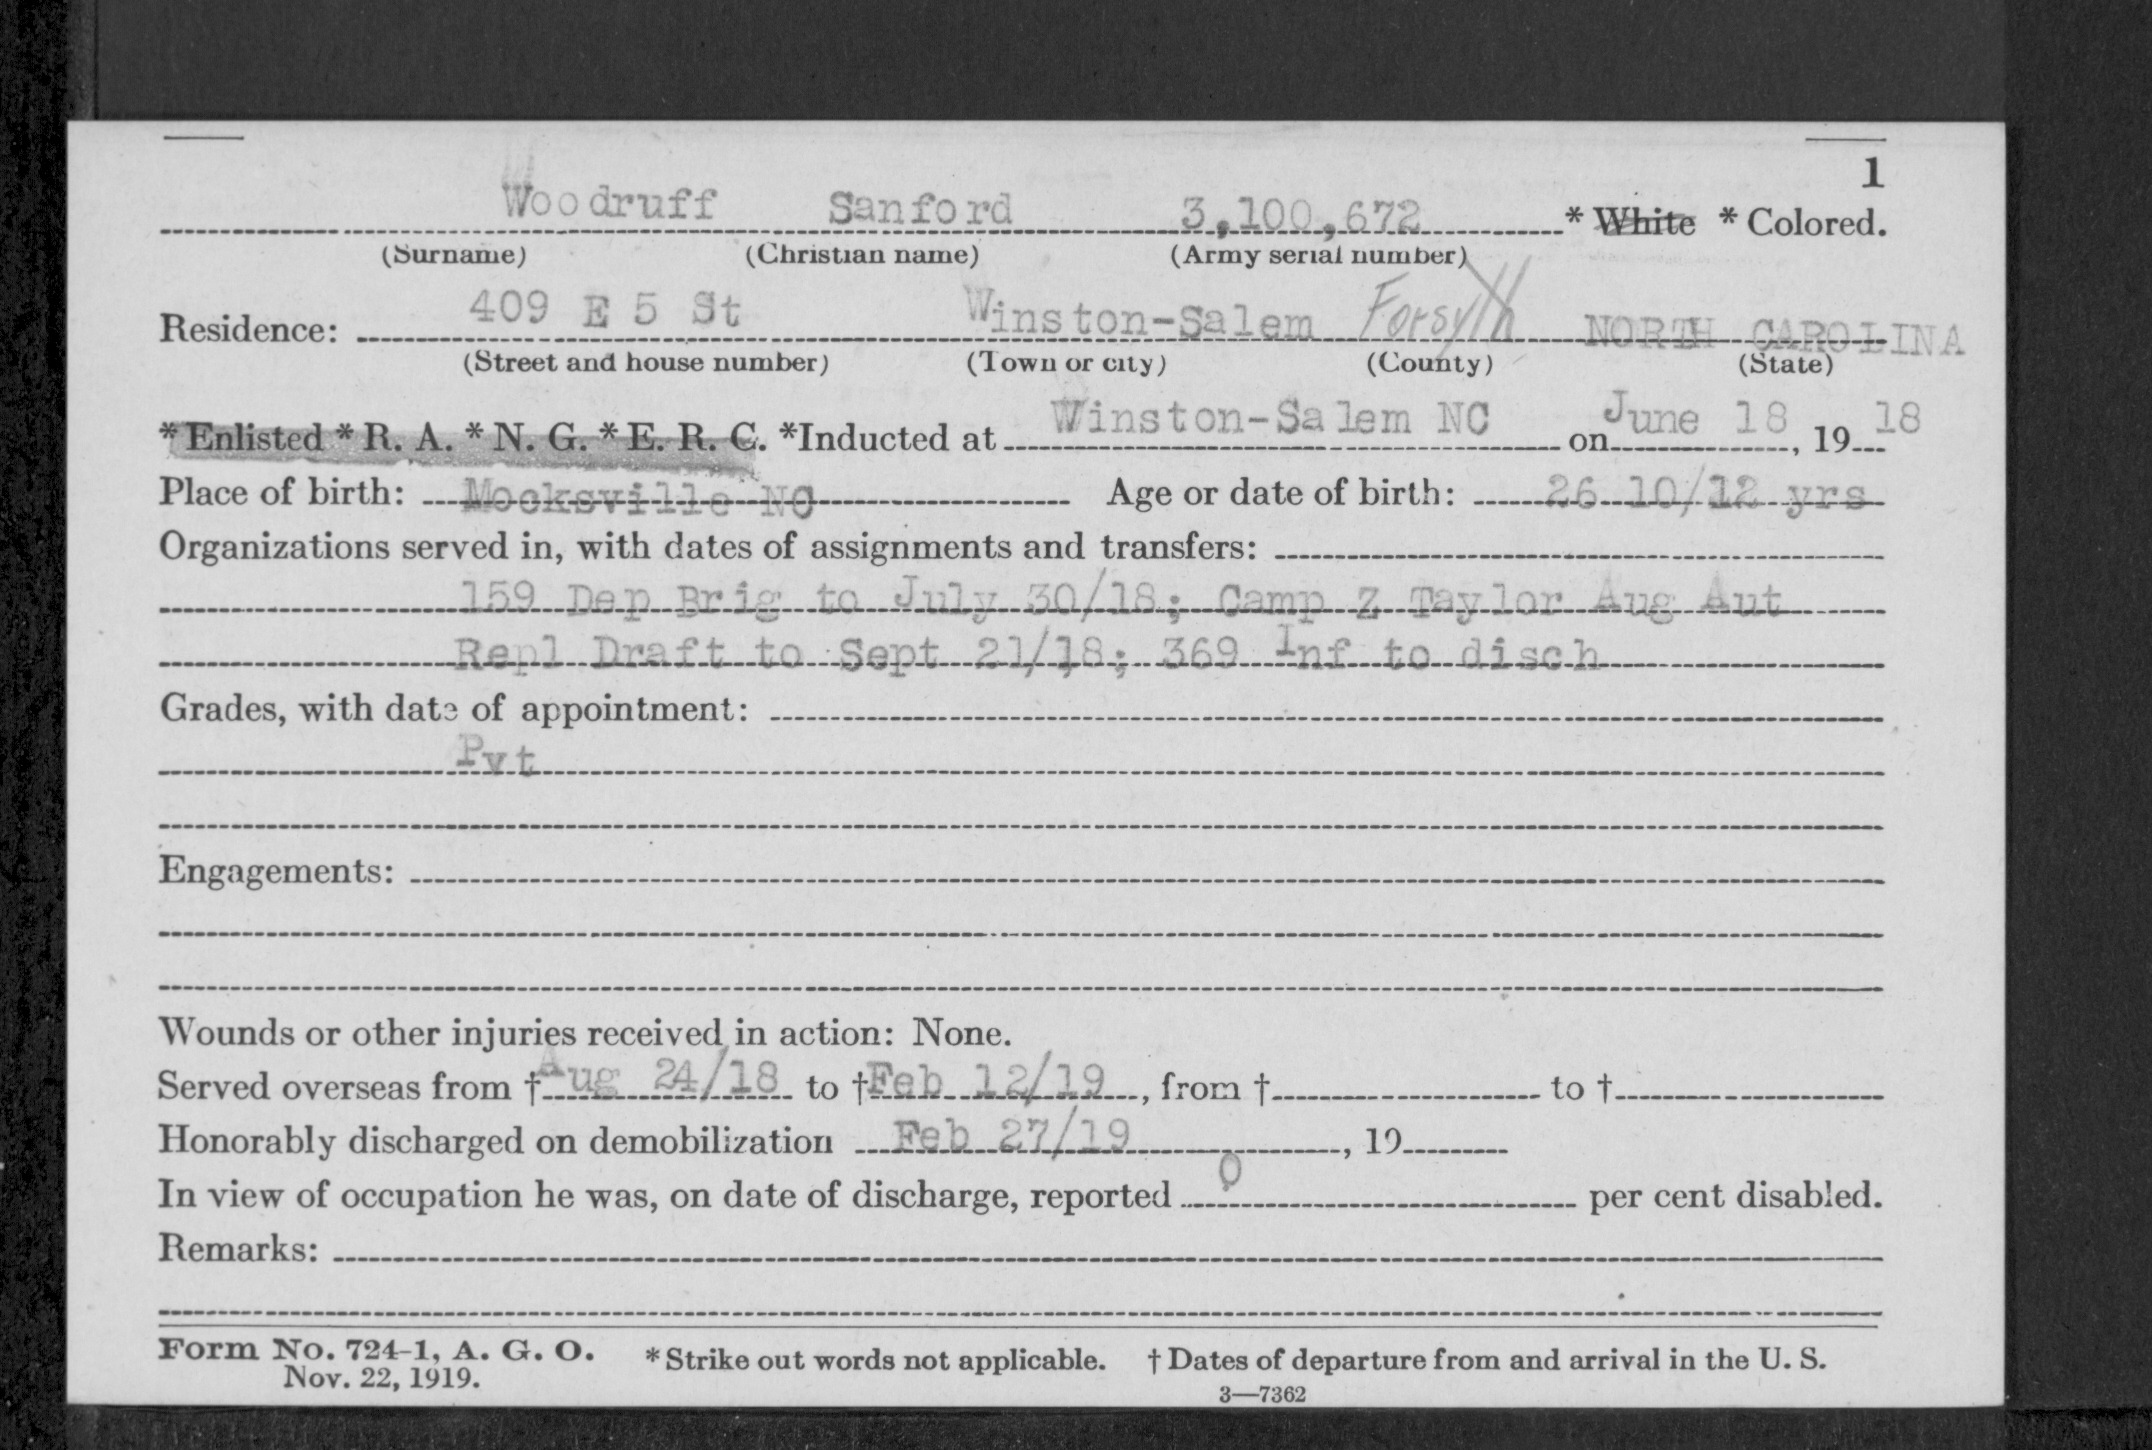 1
Woodruff Sanford 3,100,672 * White * Colored.
(Surname) (Christian name) (Army serial number)
Residence: 409 E 5 St Winston-Salem Forsyth NORTH CAROLINA
(Street and house number) (Town or city) (County) (State)
*Enlisted *R. A. *N. G. *E. R. C. *Inducted at Winston-Salem NC on June 18, 19 18
Place of birth: Mocksville NC Age or date of birth: 26 10/12 yrs
Organizations served in, with dates of assignments and transfers:
159 Dep Brig to July 30/18; Camp Z Taylor Aug Aut
Repl Draft to Sept 21/18; 369 Inf to disch
Grades, with date of appointment:
Pvt
Engagements:
Wounds or other injuries received in action: None.
Served overseas from † Aug 24/18 to † Feb 12/19, from † to †
Honorably discharged on demobilization Feb 27/19, 19
In view of occupation he was, on date of discharge, reported 0 per cent disabled.
Remarks:
Form No. 724-1, A. G. O. *Strike out words not applicable. † Dates of departure from and arrival in the U. S.
Nov. 22, 1919.
3—7362